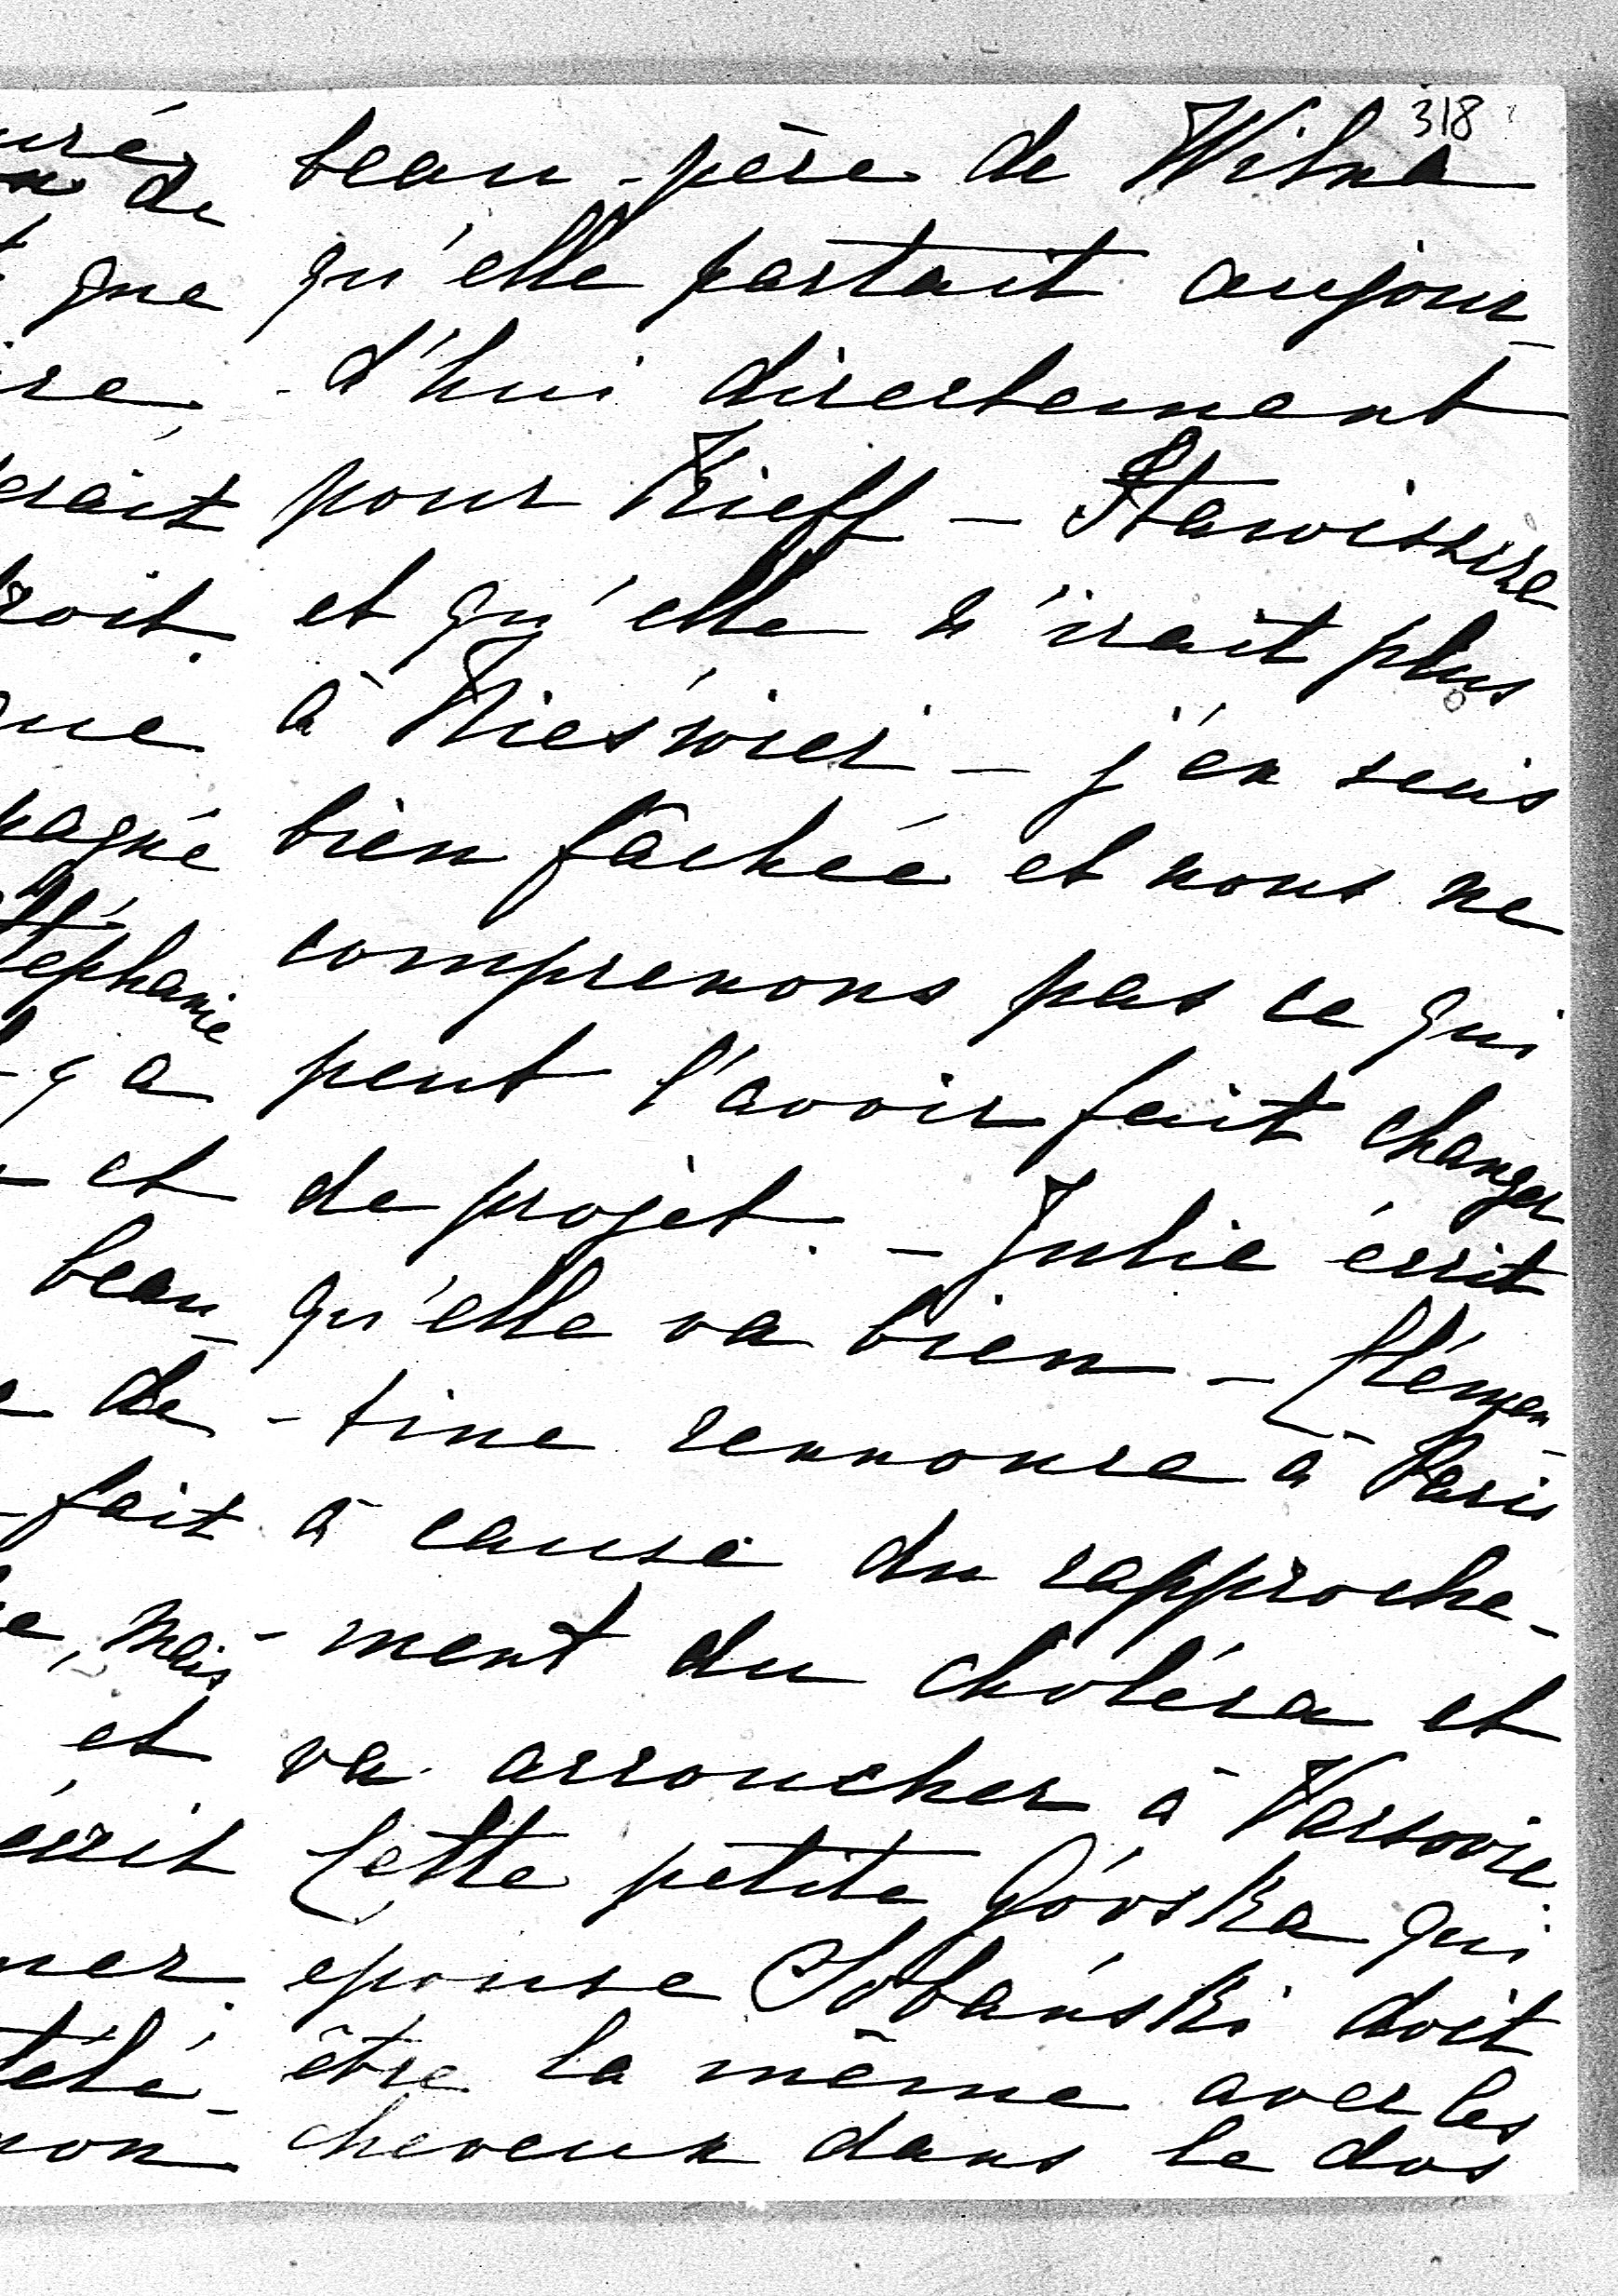 318
beau-père de Wilna
qu'elle partait aujour-
-d'hui directement
pour Kieff - Stawiszcze
et qu'elle n'irait plus
à Nieśwież - j'en suis
bien fâchée et nous ne
comprenons pas ce qui
peut l'avoir fait changer
de projet. - Julie écrit
qu'elle va bien - Clémen-
-tine renonce à Paris
à cause du rapproche-
-ment du choléra et
va accoucher à Varsovie.
Cette petite Górska qui
epouse Sobański doit
être la même avec les
cheveux dans le dos
de
que
roit.
Stéphanie
y a
et
beau-
de
fait
mais
et
écrit
télé-